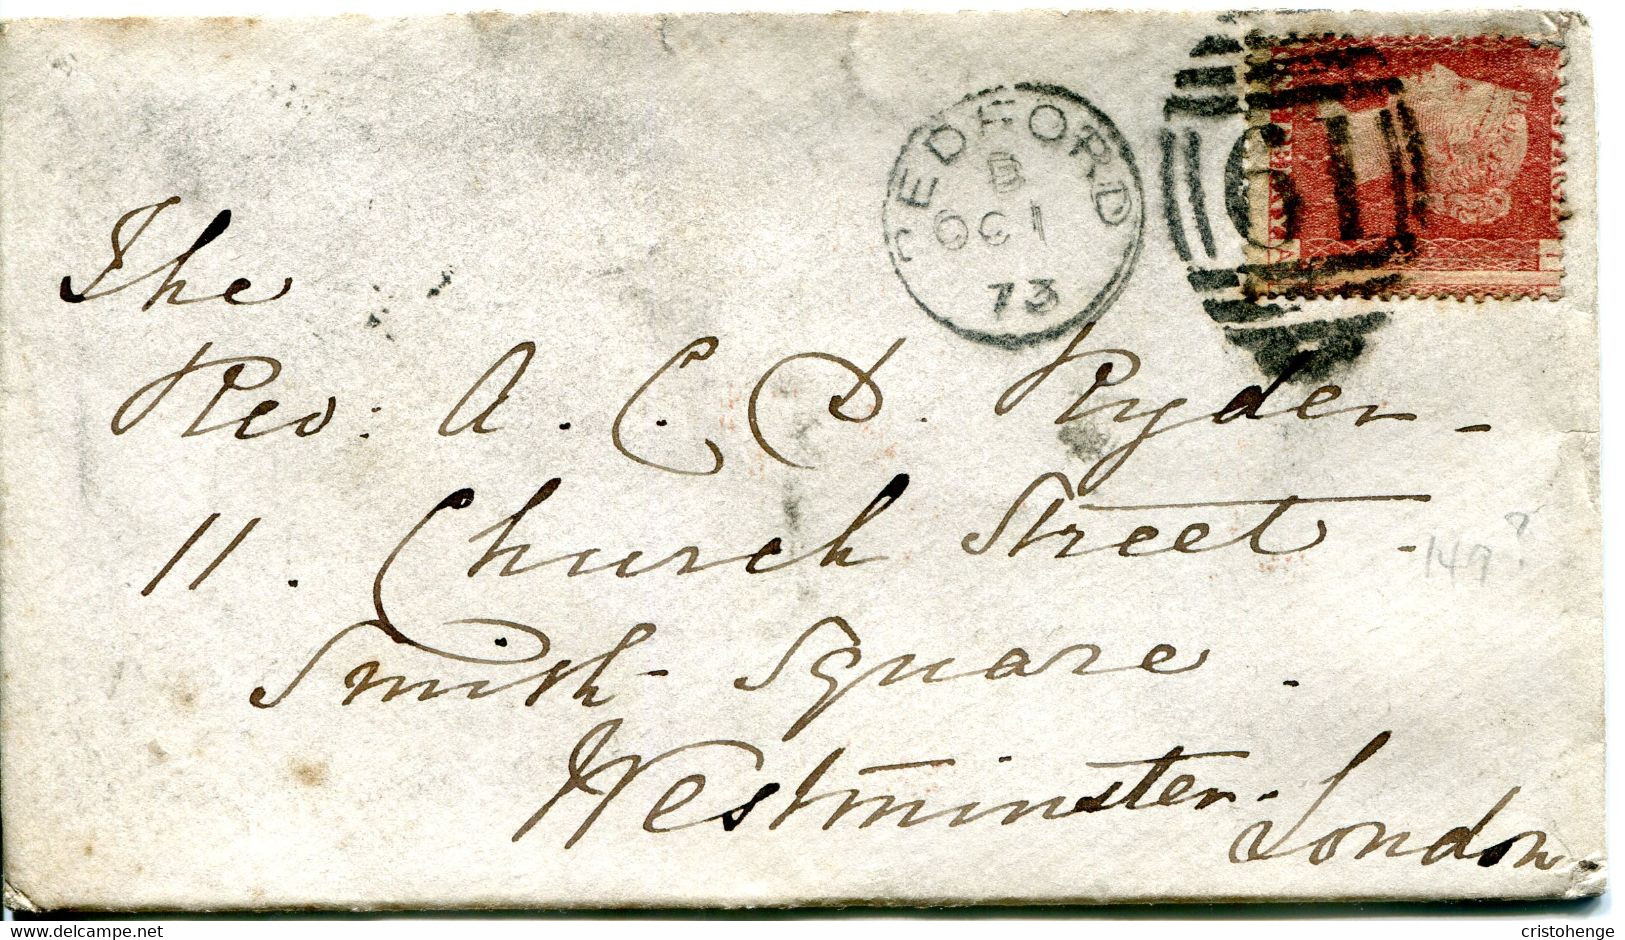 BEDFORD
B
OC 1
73
61
The
Rev: A. C. D. Ryder -
11. Church Street.
Smith Square.
Westminster.
London
149?
www.delcampe.net
cristohenge